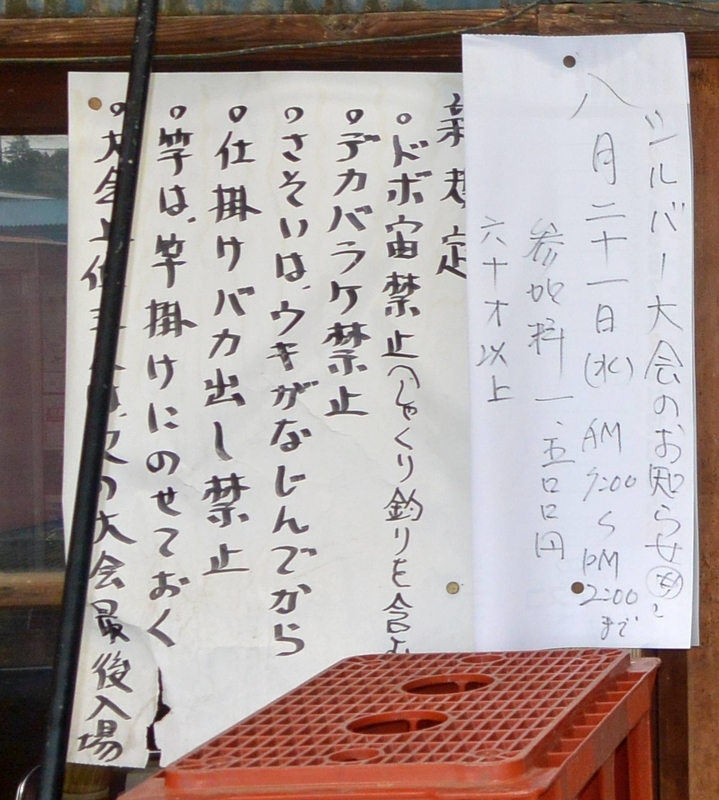 シルバー大会のお知らせ
八月二十一日(水) AM 7:00〜PM 2:00まで
参加料 一、五〇〇円
六十才以上
新規定
。ドボ宙禁止(しゃくり釣りも含む
。デカバラケ禁止
。さそいは、ウキがなじんでから
。仕掛けバカ出し禁止
。竿は、竿掛けにのせておく
。大会上位 次の大会最後入場